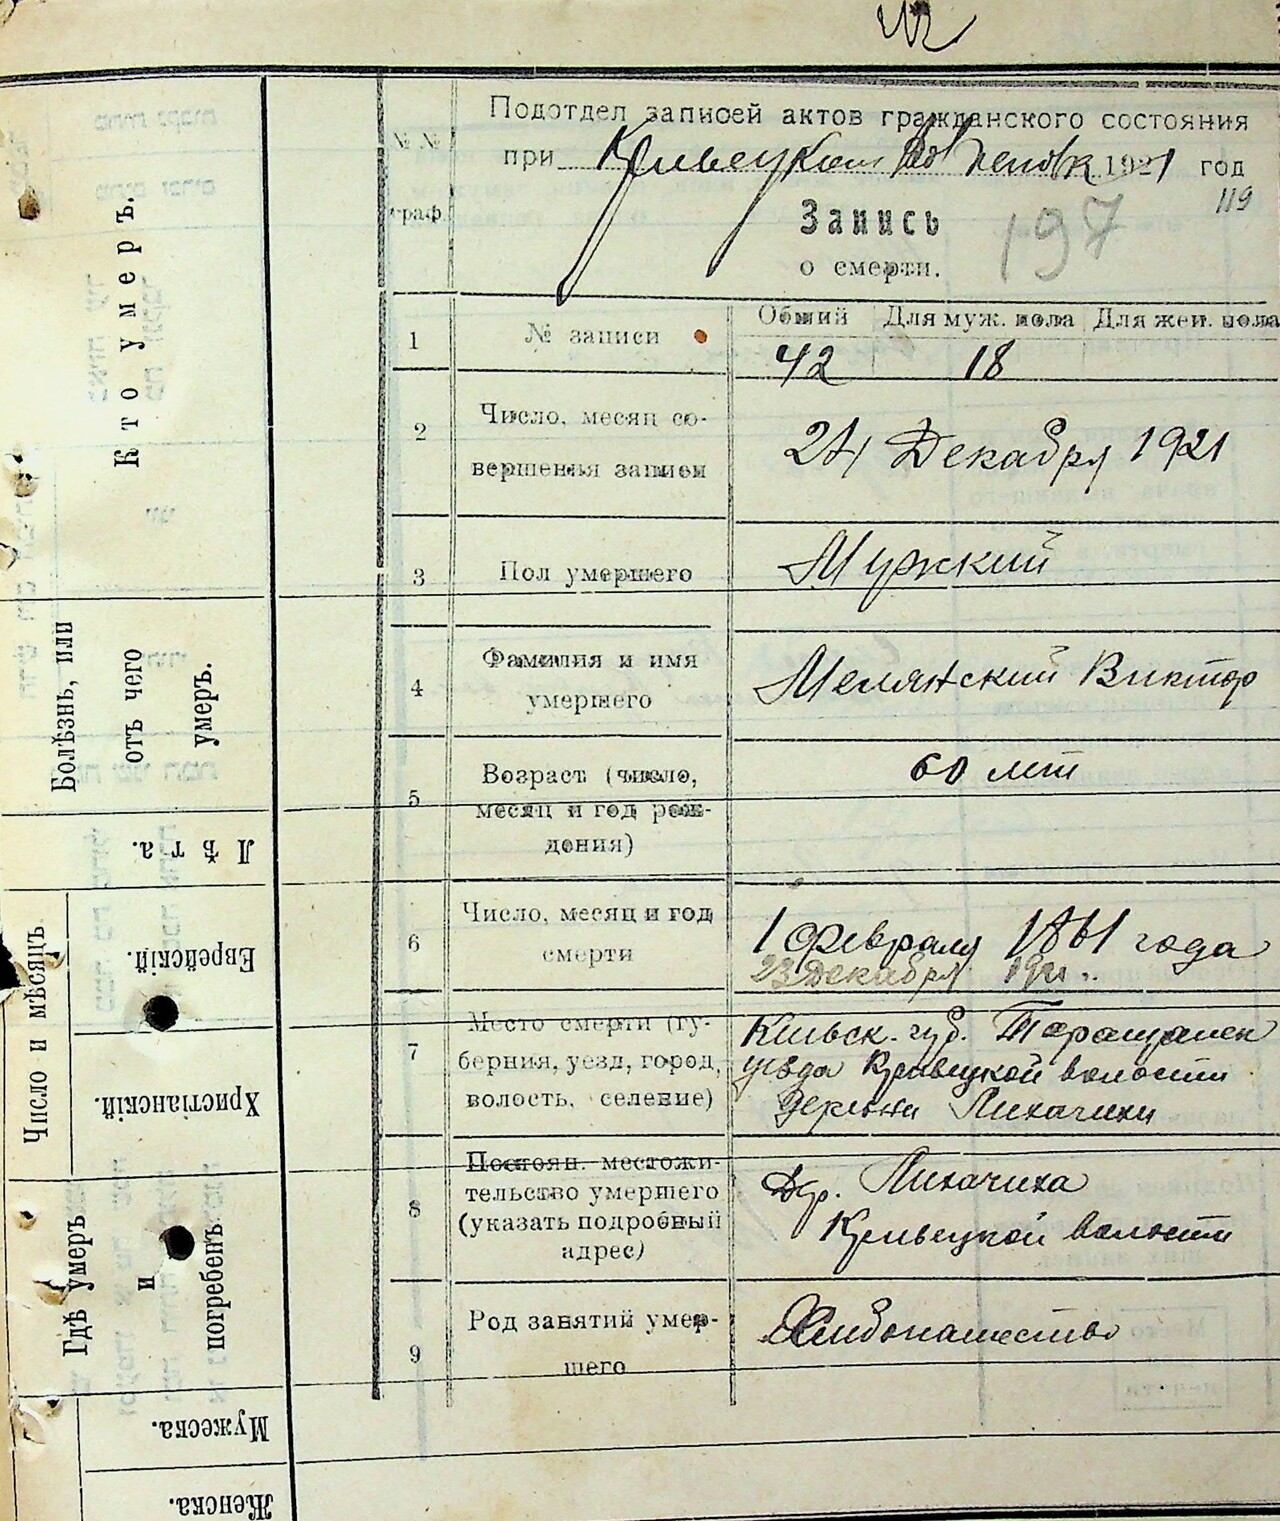 Подотдел записей актов гражданского состояния
при Кривецком 1921 год
119
№ №
граф.
Запись
197
о смерти.
Общий Для муж. пола Для жен. пола
1 № записи 42 18
2 Число, месяц со-
вершенья записи
24 Декабря 1921
3 Пол умершего Мужский
4 Фамилия и имя
умершего
Мелянский Виктор
5 Возраст (число,
месяц и год рож-
дения)
60 лет
6 Число, месяц и год
смерти
1 февраля 1861 года
23 Декабря 1921 г.
7 Место смерти (гу-
берния, уезд, город,
волость, селение)
Киевск. губ. Таращанск
уезда Кривецкой волости
Деревни Лихачихи
8 Постоян. местожи-
тельство умершего
(указать подробный
адрес)
Дер. Лихачиха
Кривецкой волости
9 Род занятий умер-
шего
Хлибопашество
Кто умеръ.
Болѣзнь, или
отъ чего
умеръ.
Лѣта.
Число и мѣсяцъ
Еврейскій.
Христіанскій.
Гдѣ умеръ
и
погребенъ
Мужеска.
Женска.